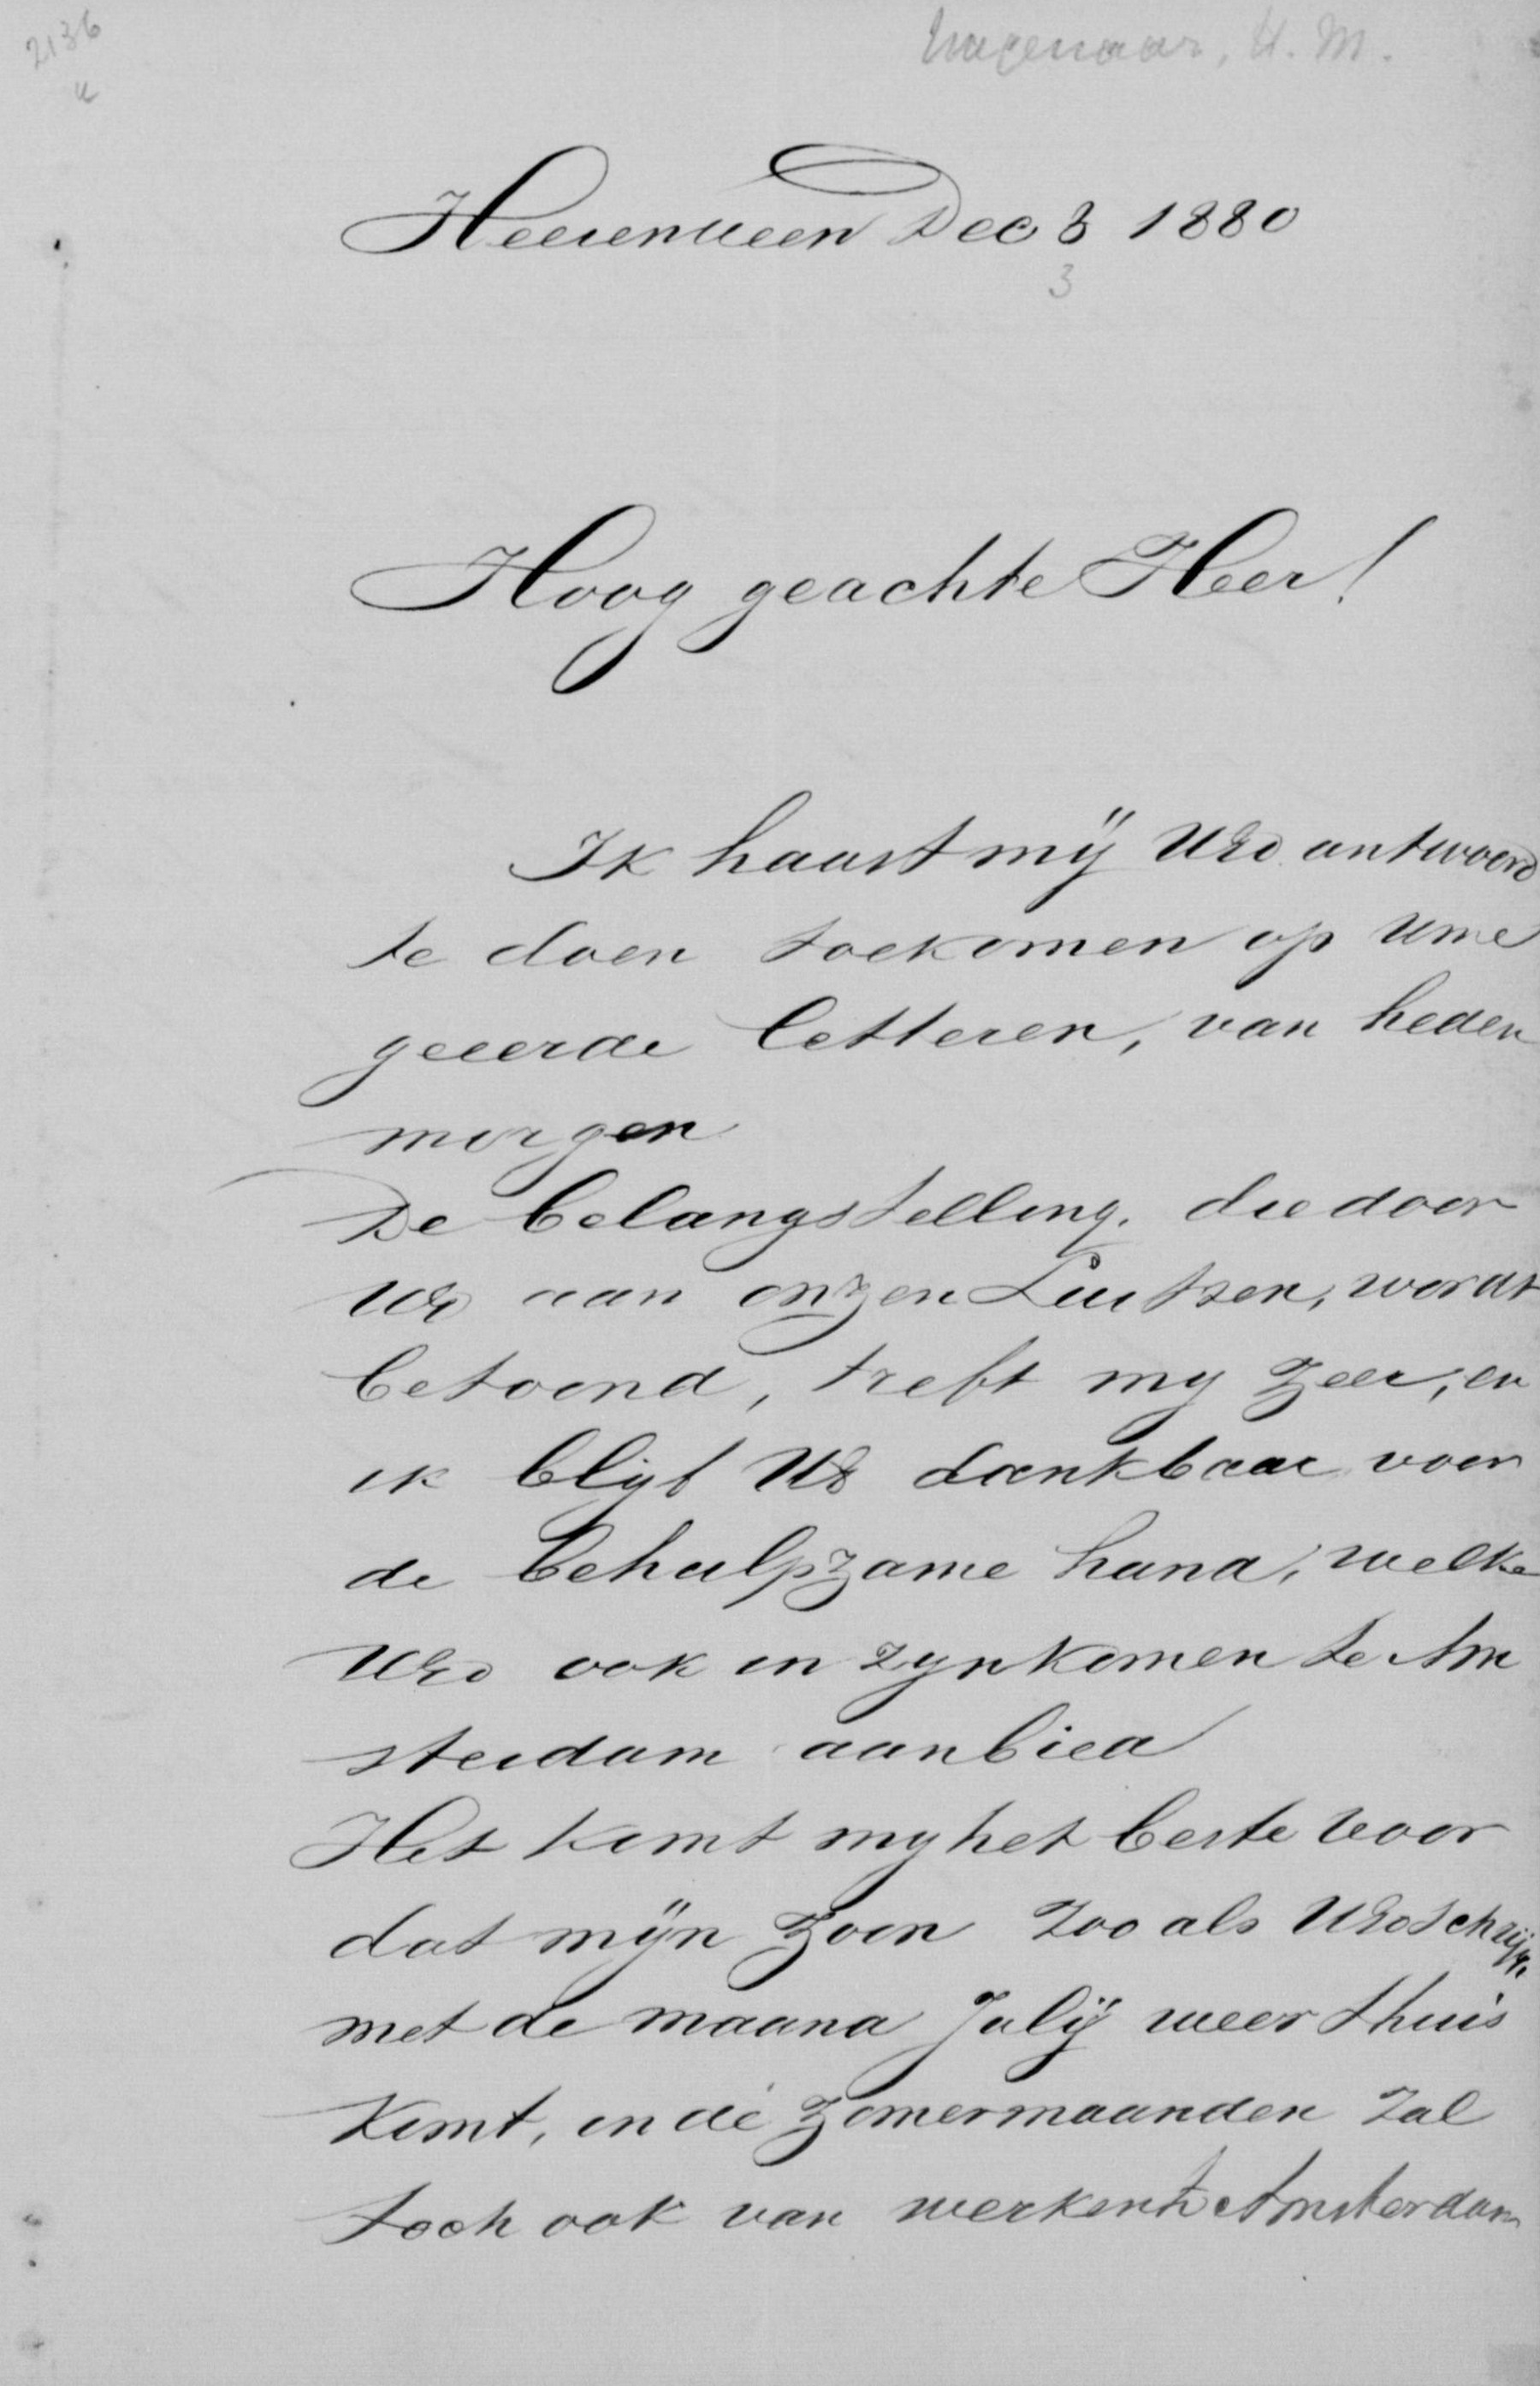 2136
Wagenaar, H. M.
Heerenveen Dec 3 1880
3
Hoog geachte Heer!
Ik haast mÿ UEd antwoord
te doen toekomen op Uwe
geeerde letteren, van heden
morgen
De belangstelling. die door
UE aan onzen Luitzen, wordt
betoond, treft my zeer, en
ik blijf UE dankbaar voor
de behulpzame hand, welke
UEd ook in zyn komen te Am
sterdam aanbied
Het komt my het beste voor
dat mÿn Zoon Zoo als UEd schrijft,
met de maand Julÿ weer thuis
Komt, in de Zomermaanden Zal
toch ook van werken te Amsterdam